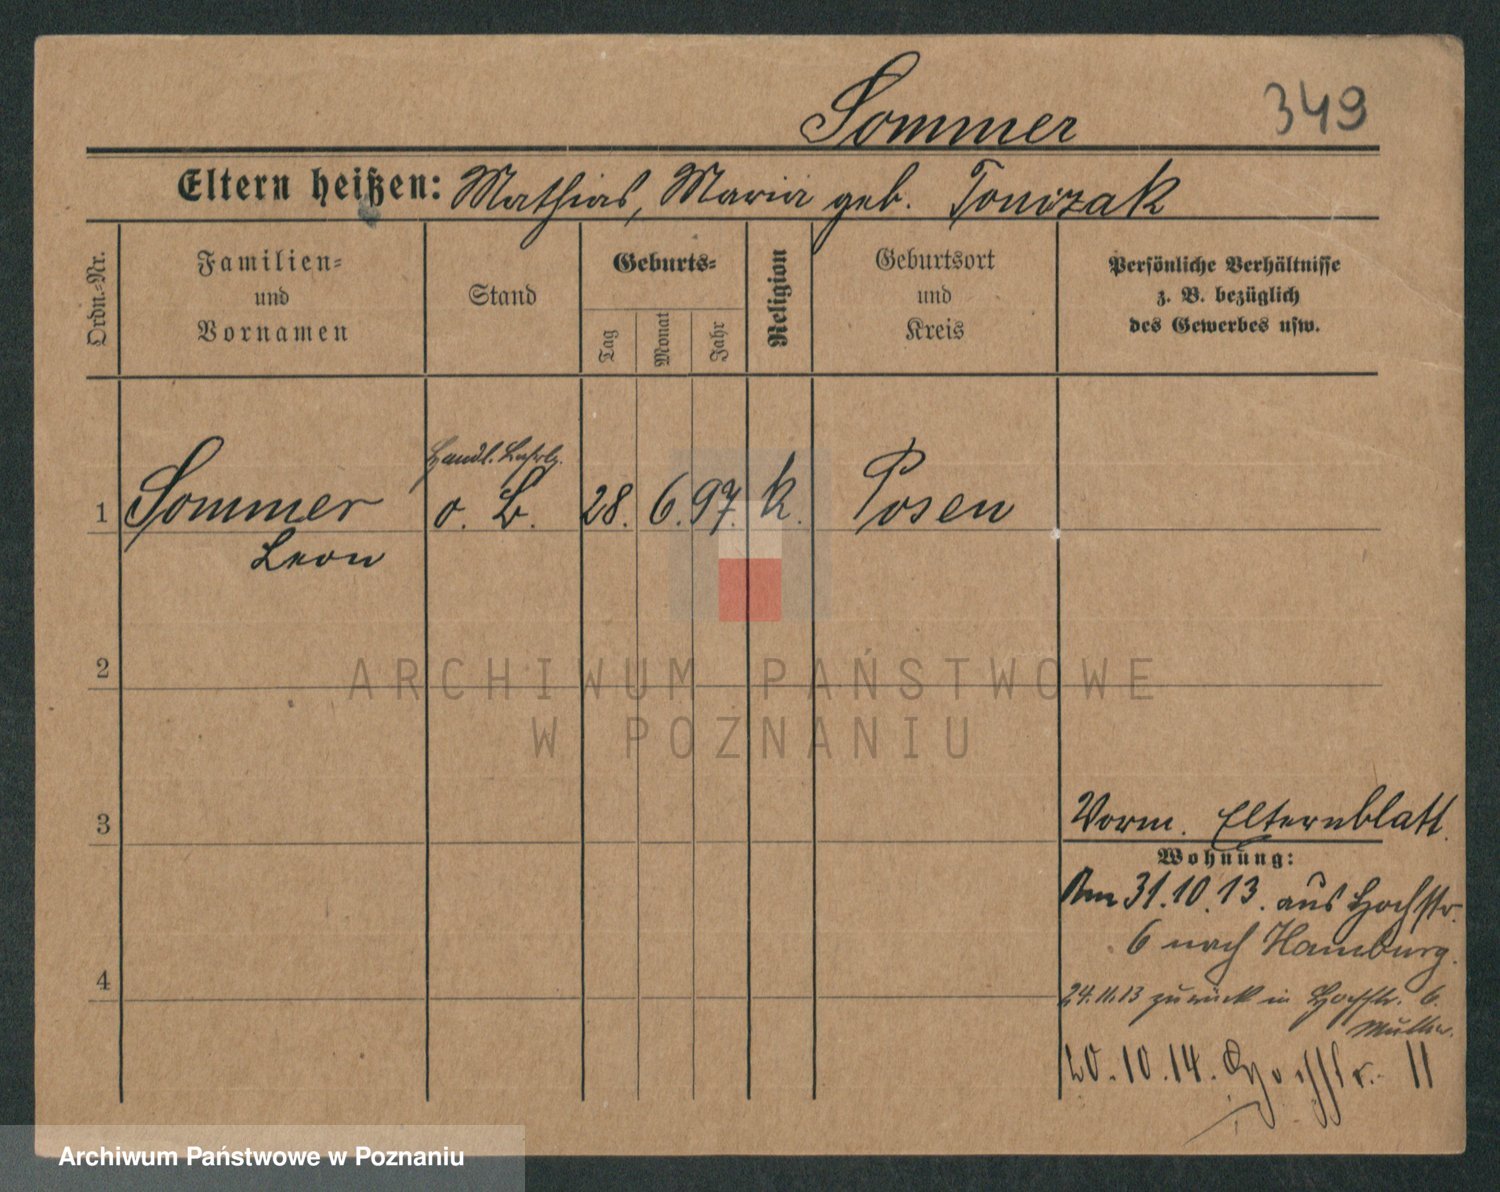 Sommer 349
Eltern heißen: Mathias, Maria geb. Tonizak
Ordn.-Nr.
Familien-
und
Vornamen
Stand
Geburts-
Tag
Monat
Jahr
Religion
Geburtsort
und
Kreis
Persönliche Verhältnisse
z. B. bezüglich
des Gewerbes usw.
Handl. Lehrlg.
1 Sommer o. B. 28. 6. 97. k. Posen
Leon
2
ARCHIWUM PAŃSTWOWE
W POZNANIU
3
Vorm. Elternblatt.
Wohnung:
Am 31.10.13. aus Hochstr.
6 nach Hamburg.
4
24.11.13 zurück in Hochstr. 6.
Mutter.
20.10.14. Hochstr. 11
Archiwum Państwowe w Poznaniu